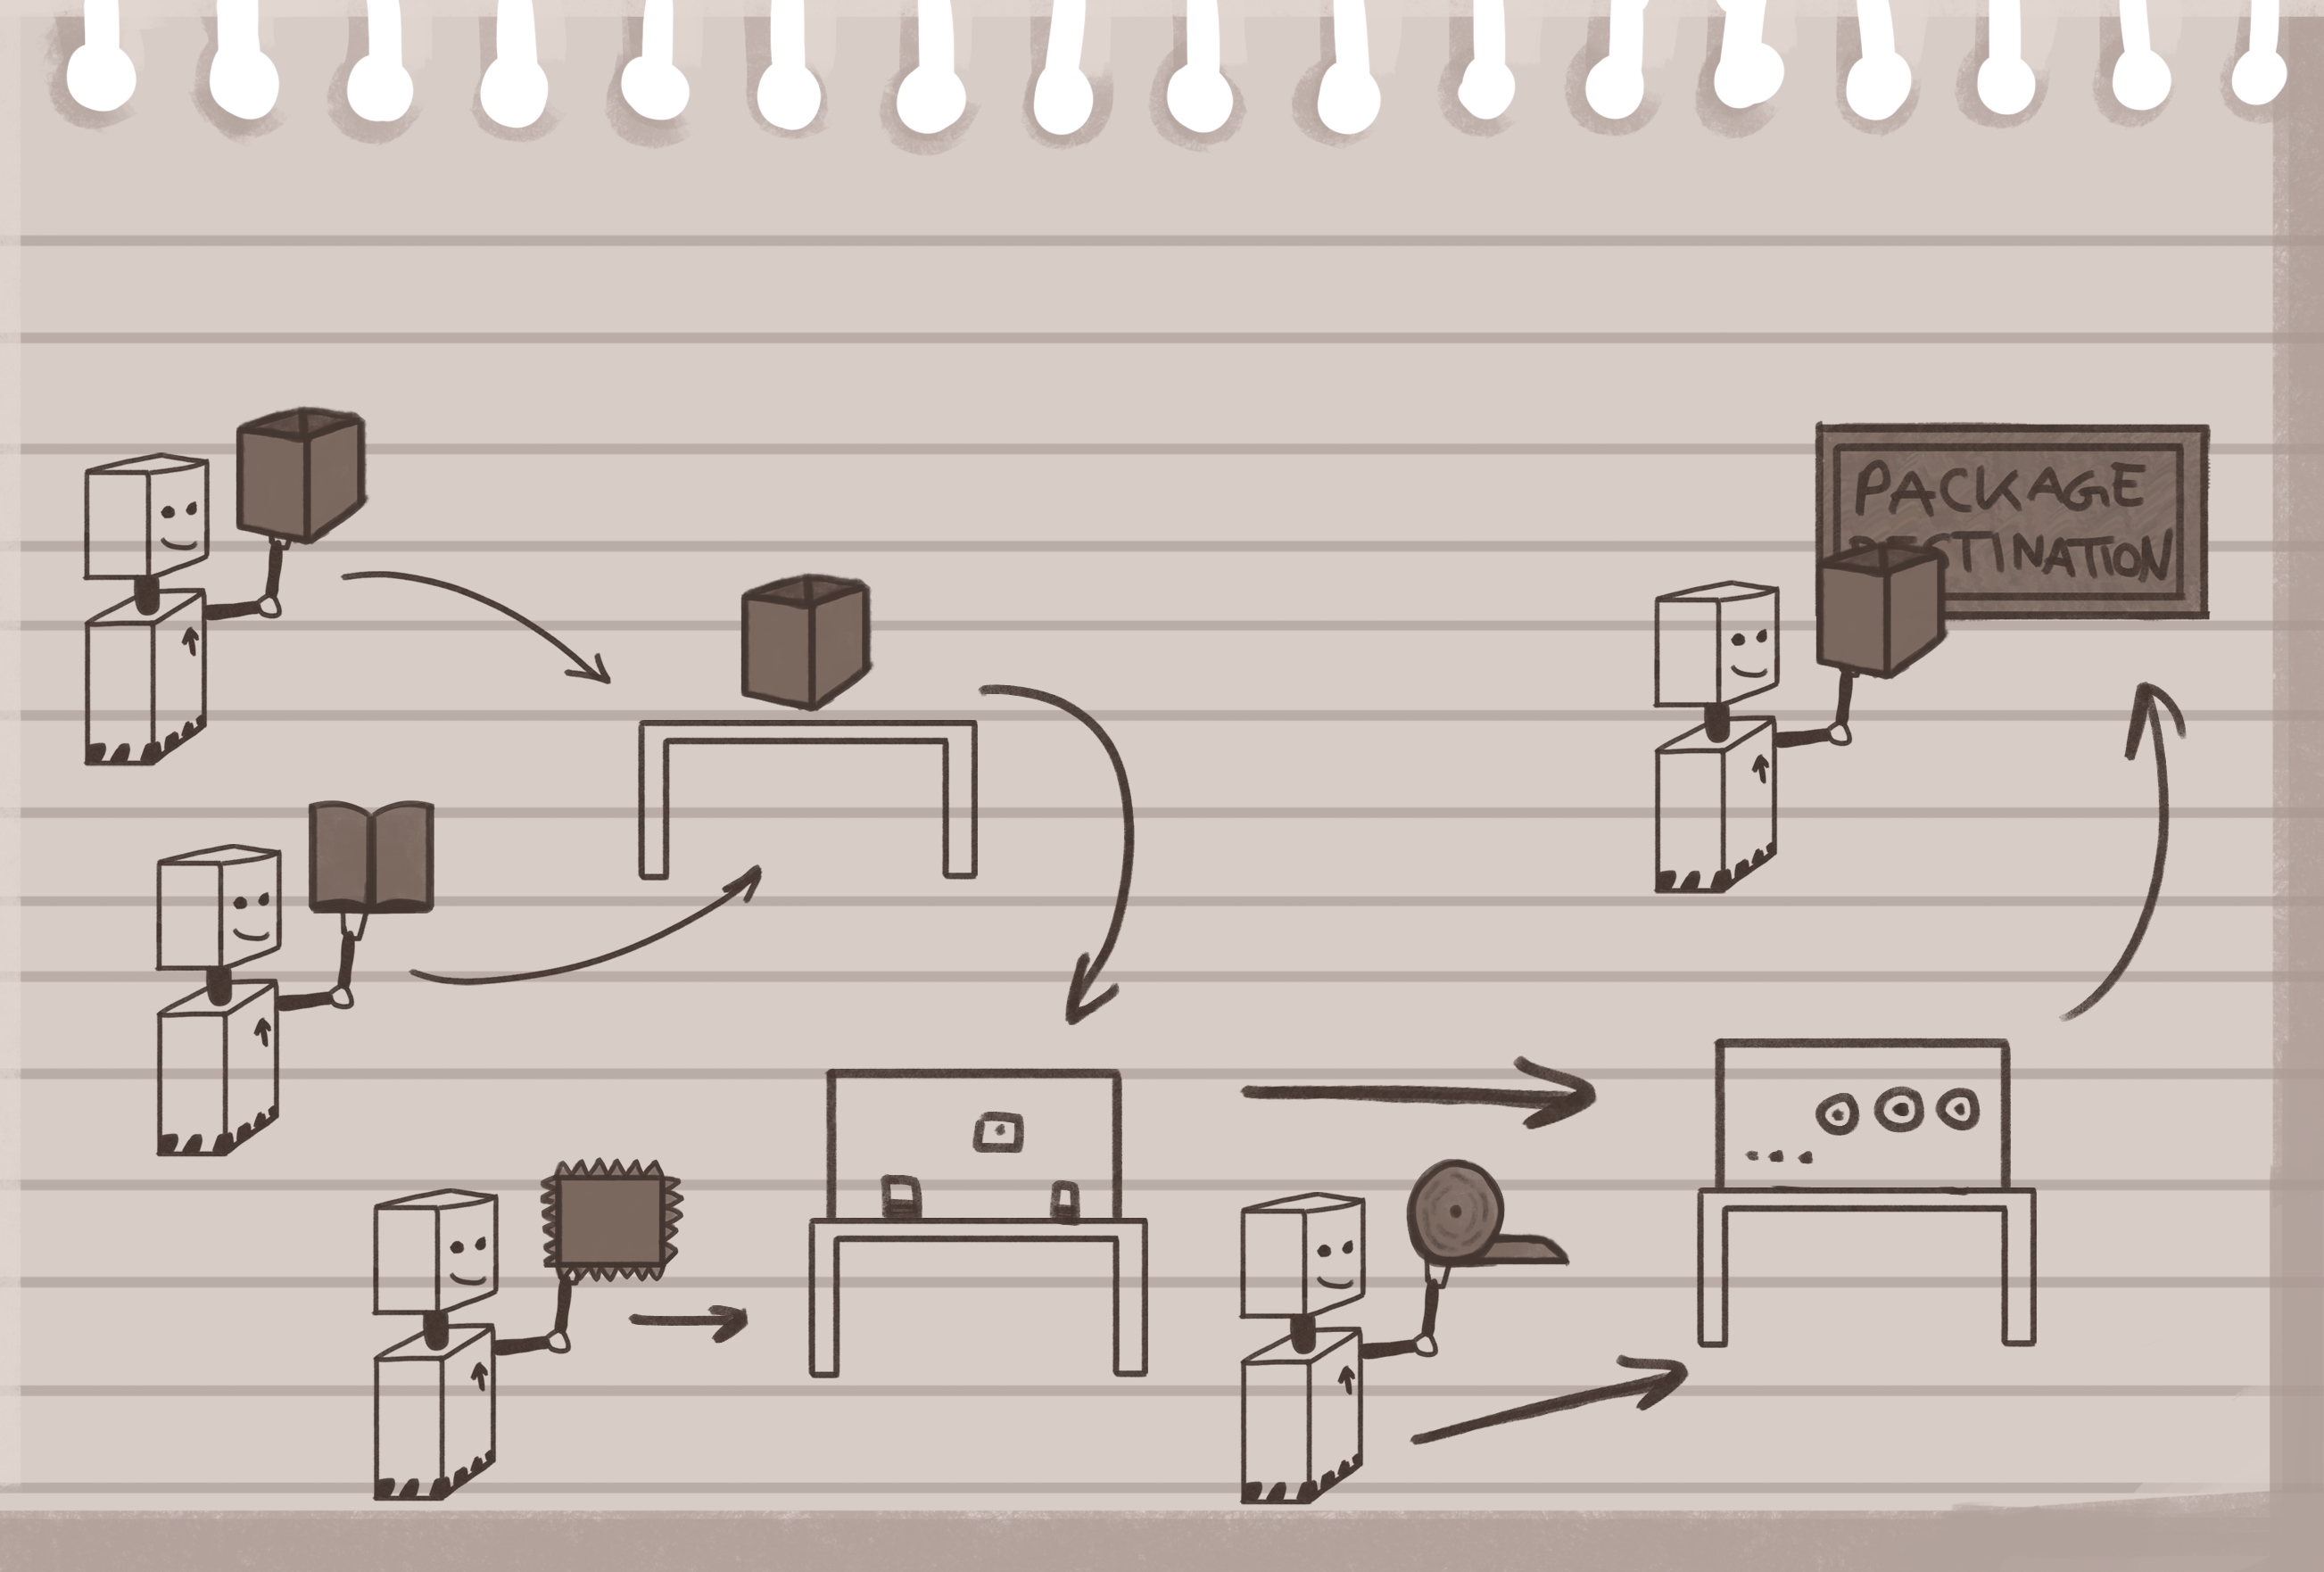 PACKAGE
DESTINATION